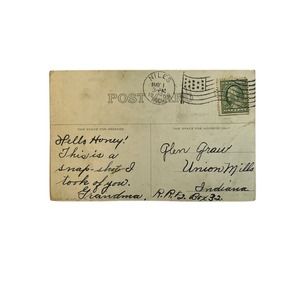 NILES
POST CARD
THE SPACE FOR MESSAGE
THE SPACE FOR ADDRESS ONLY
Hello Honey!
This is a
snap-shot I
took of you.
Grandma.
Glen Graw
Union Mills
Indiana
R.R.2. Box 32.